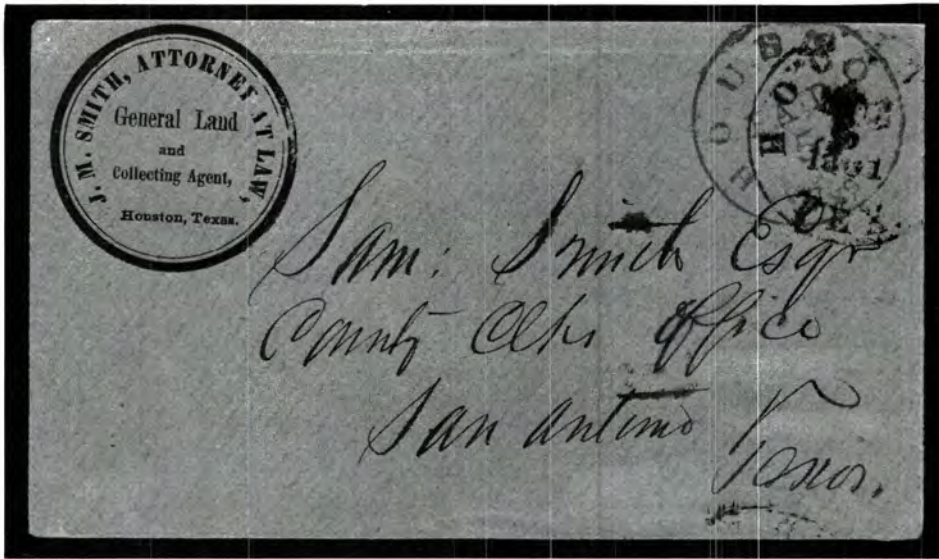 J. M. SMITH, ATTORNEY AT LAW,
General Land
and
Collecting Agent,
Houston, Texas.
Sam: Smith Esqr
County Clks office
San Antonio
Texas.